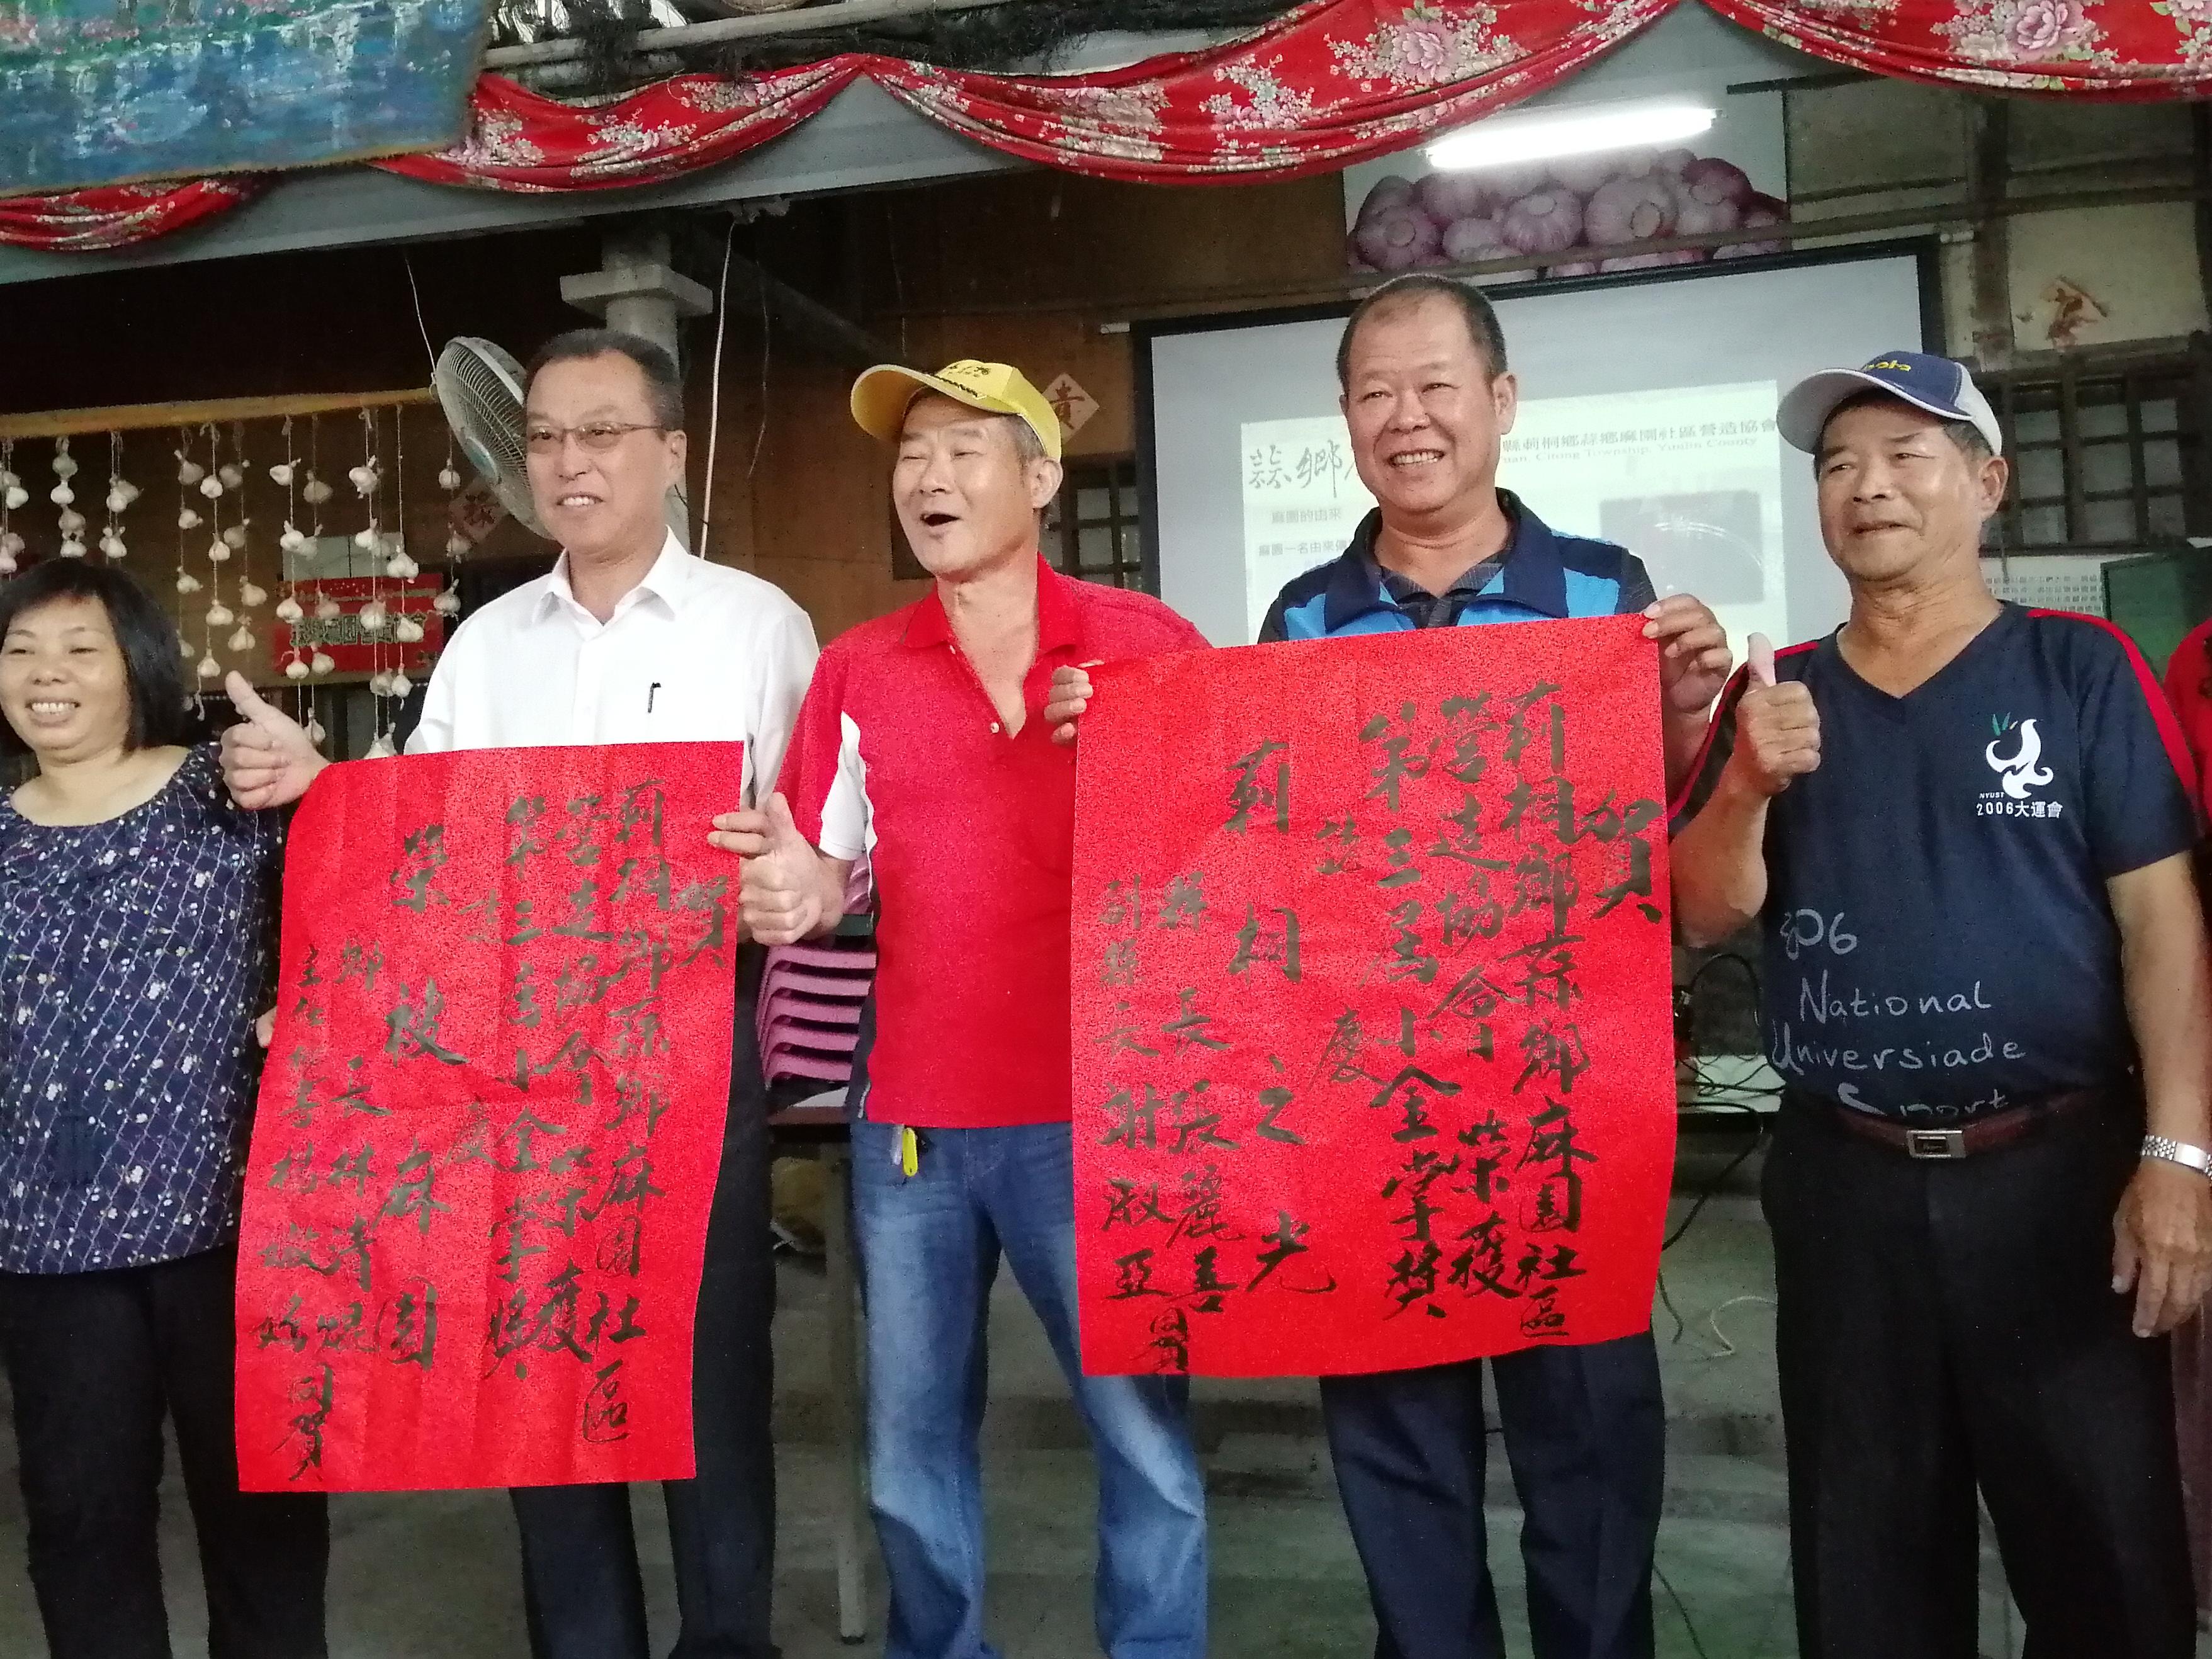 賀
莿桐鄉蒜鄉麻園社區
營造協會 榮獲
第三屆小金掌獎
誌慶
榮被麻園
鄉長林清
主任秘書楊
同賀
賀
莿桐鄉蒜鄉麻園社區
營造協會 榮獲
第三屆小金掌獎
誌慶
莿桐之光
縣長張麗善
副縣長謝淑亞
同賀
縣莿桐鄉蒜鄉麻園社區營造協會
uan, Citong Township, Yunlin County
蒜鄉
麻園的由來
麻園一名由來
貴
NYUST
2006大運會
National
Universiade
Sport